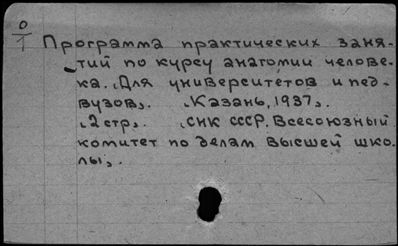 0
1 Программа практических заня-
тий по курсу анатомии челове-
ка. Для университетов и пед-
вузов. Казань, 1937.
2 стр. СНК СССР. Всесоюзный
комитет по делам высшей шко-
лы.